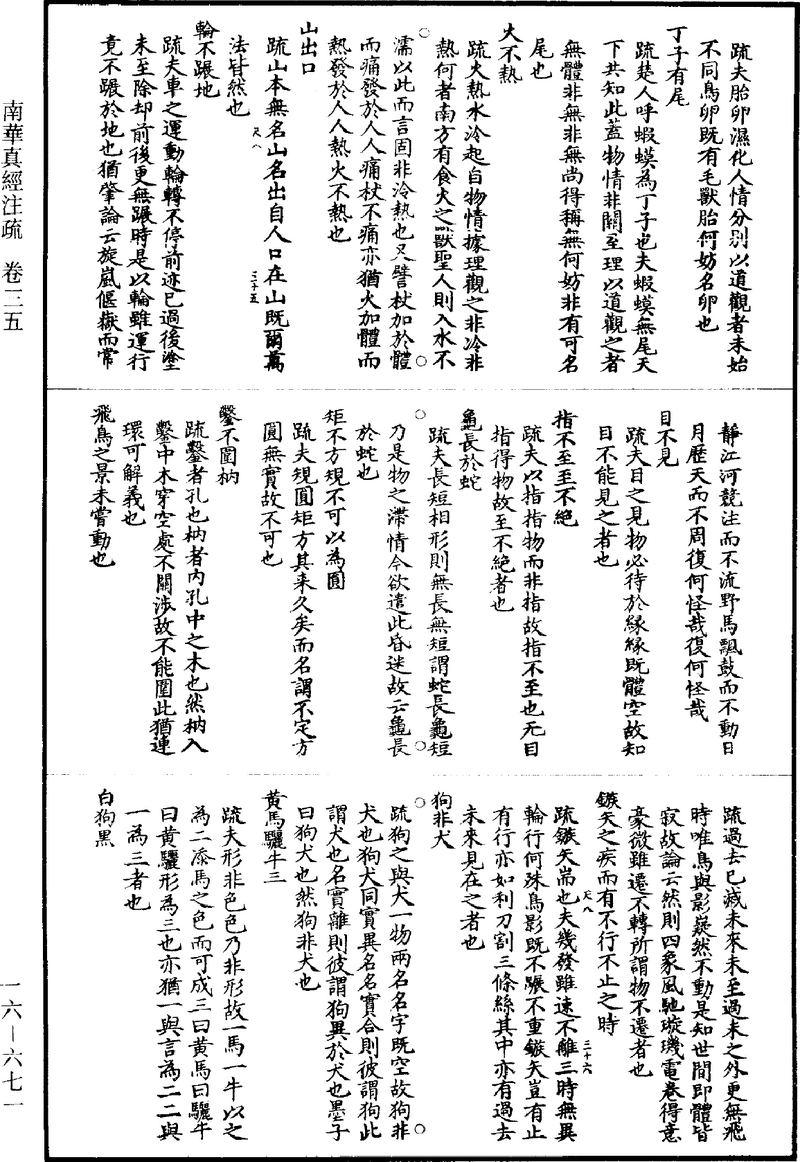 疏夫胎卵濕化人情分别以道觀者未始
不同鳥卵既有毛獸胎何妨名卵也
丁子有尾
疏楚人呼蝦蟆為丁子也夫蝦蟆無尾天
下共知此蓋物情非關至理以道觀之者
無體非無非無尚得稱無何妨非有可名
尾也
火不熱
疏火熱水冷起自物情據理觀之非冷非
熱何者南方有食火之獸聖人則入水不
濡以此而言固非冷熱也又譬杖加於體
而痛發於人人痛杖不痛亦猶火加體而
熱發於人人熱火不熱也
山出口
疏山本無名山名出自人口在山既爾萬
法皆然也
天八
三十五
輪不蹍地
疏夫車之運動輪轉不停前迹已過後塗
未至除却前後更無蹍時是以輪雖運行
竟不蹍於地也猶肇論云旋嵐偃嶽而常
靜江河競注而不流野馬飄鼓而不動日
月歷天而不周復何怪哉復何怪哉
目不見
疏夫目之見物必待於緣緣既體空故知
目不能見之者也
指不至至不絕
疏夫以指指物而非指故指不至也无目
指得物故至不絕者也
龜長於蛇
疏夫長短相形則無長無短謂蛇長龜短
乃是物之滯情今欲遣此昏迷故云龜長
於蛇也
矩不方規不可以為圓
疏夫規圓矩方其来久矣而名謂不定方
圓無實故不可也
鑿不圍枘
疏鑿者孔也枘者内孔中之木也然枘入
鑿中木穿空處不關涉故不能圍此猶連
環可解義也
飛鳥之景未嘗動也
疏過去已滅未來未至過未之外更無飛
時唯鳥與影嶷然不動是知世間即體皆
寂故論云然則四象風馳璇璣電卷得意
豪微雖遷不轉所謂物不遷者也
鏃矢之疾而有不行不止之時
疏鏃矢耑也夫幾發雖速不離三時無異
輪行何殊鳥影既不蹍不重鏃矢豈有止
有行亦如利刀割三條絲其中亦有過去
未來見在之者也
天八
三十六
狗非犬
疏狗之與犬一物兩名名字既空故狗非
犬也狗犬同實異名名實合則彼謂狗此
謂犬也名實離則彼謂狗異於犬也墨子
曰狗犬也然狗非犬也
黄馬驪牛三
疏夫形非色色乃非形故一馬一牛以之
為二添馬之色而可成三曰黄馬曰驪牛
曰黄驪形為三也亦猶一與言為二二與
一為三者也
白狗黑
南華真經注疏　卷三五
一六—六七一